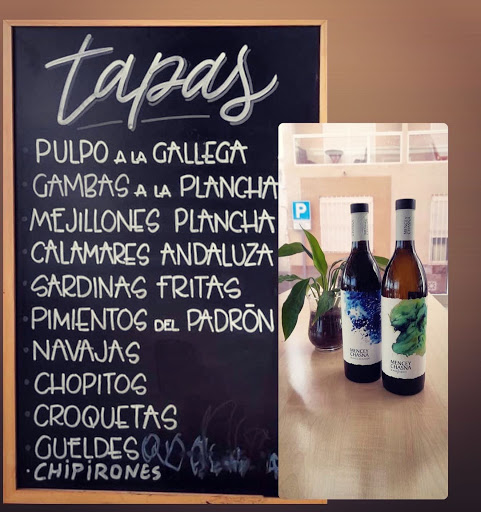 tapas
· PULPO A LA GALLEGA
· GAMBAS A LA PLANCHA
· MEJILLONES PLANCHA
· CALAMARES ANDALUZA
· SARDINAS FRITAS
· PIMIENTOS DEL PADRÓN
· NAVAJAS
· CHOPITOS
· CROQUETAS
· GUELDES
· CHIPIRONES
P
MENCEY
CHASNA
MENCEY
CHASNA